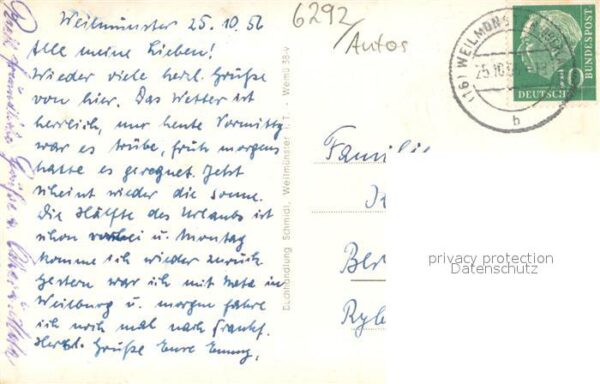 Weilmünster 25.10.56
Alle meine Lieben!
Wieder viele herzl. Grüße
von hier. Das Wetter ist
herrlich, nur heute Vormittg
war es trübe, früh morgens
hatte es geregnet. Jetzt
scheint wieder die Sonne.
Die Hälfte des Urlaubs ist
schon vorbei u. Montag
komme ich wieder zurück
Gestern war ich mit Meta in
Weilburg u. morgen fahre
ich noch mal nach Frankf.
Herzl. Grüße Eure Emmy.
Grüße
Buchhandlung Schmidt, Weilmünster i. T. - Wemü 38-v
6292/
Autos
(16) WEILMÜNS
25.10.5
b
10
DEUTSCHE
BUNDESPOST
Familie
Ber
Ryb
privacy protection
Datenschutz